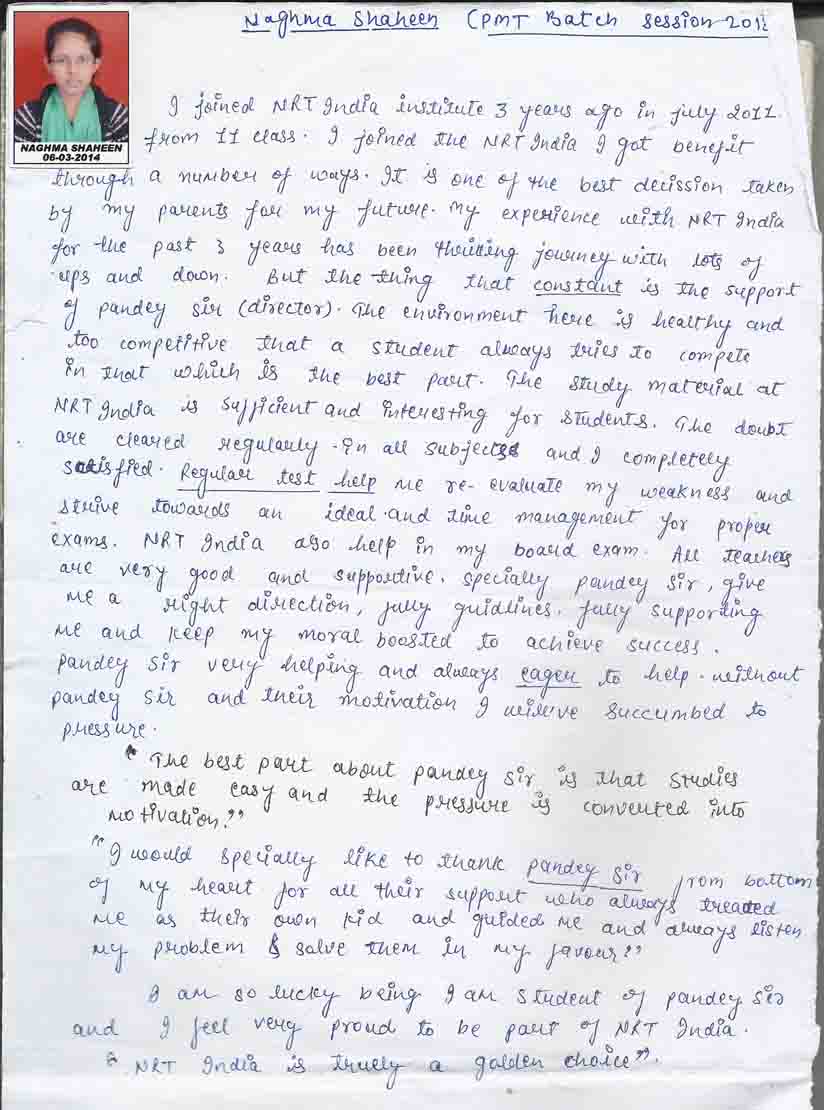 Naghma Shaheen (PMT Batch session 201
NAGHMA SHAHEEN
06-03-2014
I joined NRT India institute 3 years ago in july 2011.
from 11 class. I joined the NRT India I got benefit
through a number of ways. It is one of the best decission taken
by my parents for my future. My experience with NRT India
for the past 3 years has been thrilling journey with lots of
ups and down. But the thing that constant is the support
of pandey sir (director). The environment here is healthy and
too competitive that a student always tries to compete
in that which is the best part. The study material at
NRT India is sufficient and interesting for students. The doubt
are cleared regularly in all subjects and I completely
satisfied. Regular test help me re-evaluate my weakness and
strive towards an ideal and time management for proper
exams. NRT India also help in my board exam. All teachers
are very good and supportive. specially pandey sir, give
me a right direction, fully guidlines. fully supporting
me and keep my moral boosted to achieve success.
pandey sir very helping and always eager to help. without
pandey sir and their motivation I will've succumbed to
pressure.
" The best part about pandey sir is that studies
are made easy and the pressure is converted into
motivation."
"I would specially like to thank pandey sir from bottom
of my heart for all their support who always treated
me as their own kid and guided me and always listen
my problem & solve them in my favour"
I am so lucky being I am student of pandey sir
and I feel very proud to be part of NRT India.
" NRT India is truely a golden choice".